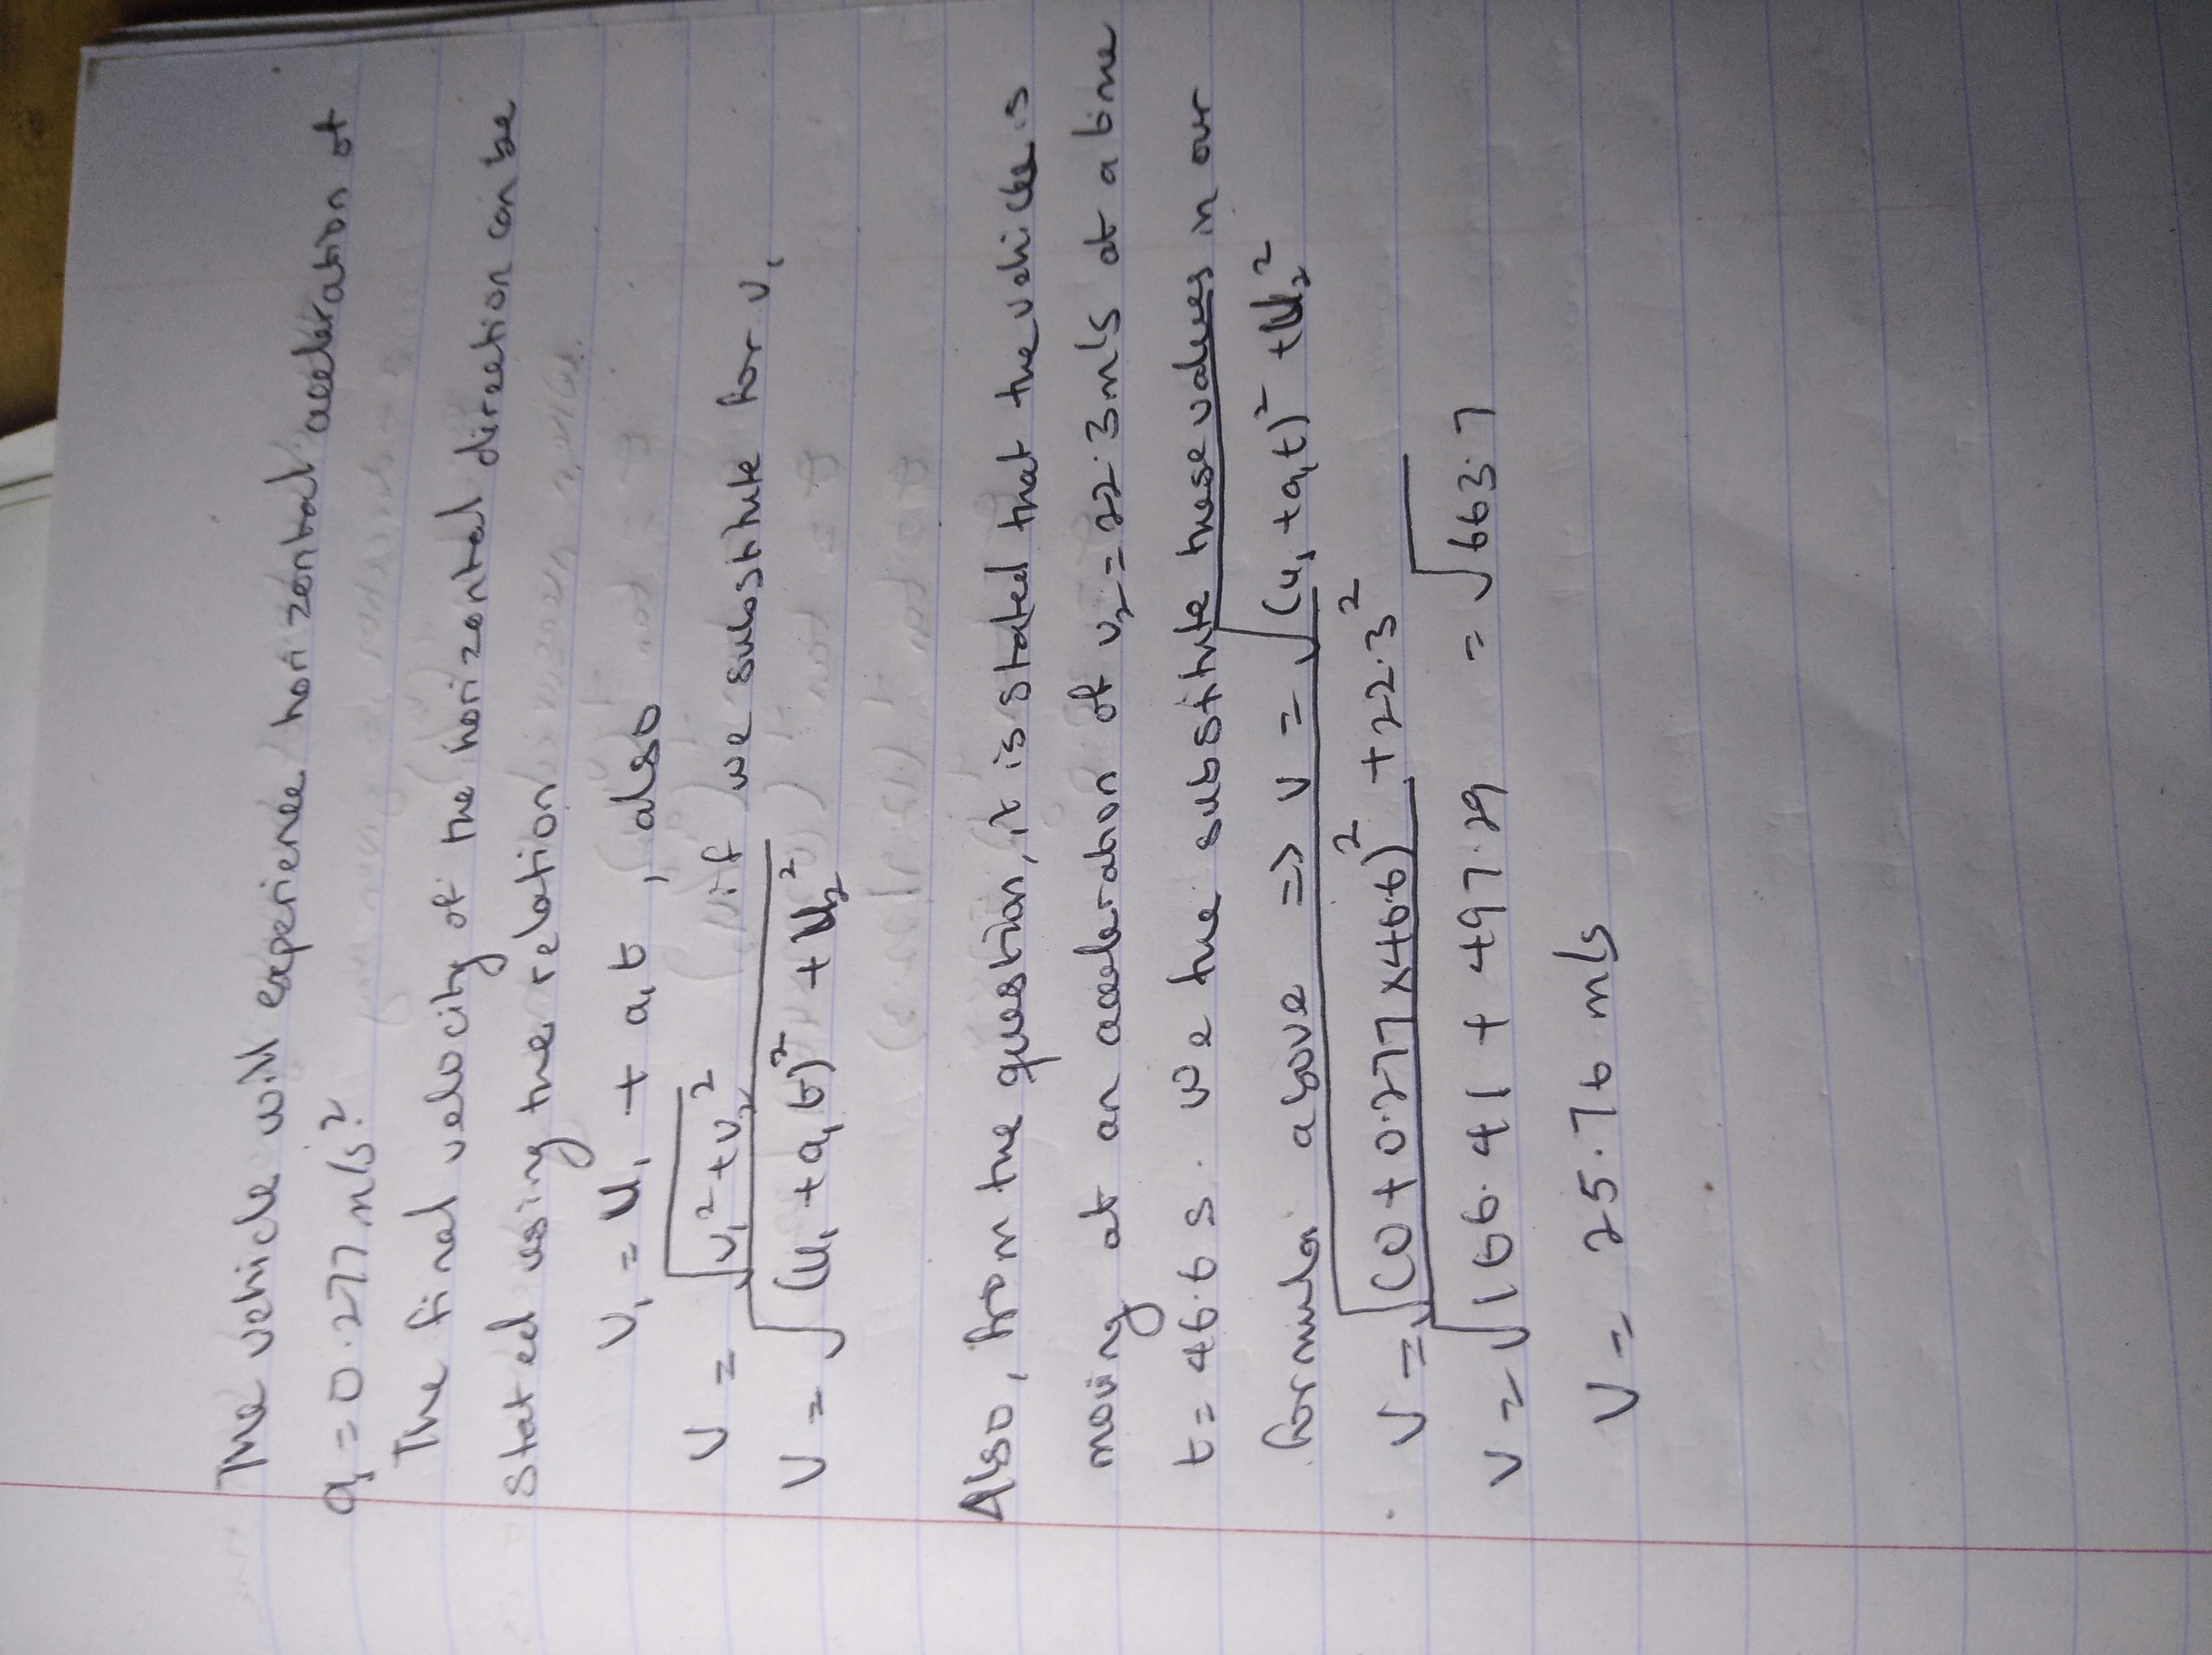 The vehicle will experience horizontal acceleration of
a₁ = 0.277 m/s²
The final velocity of the horizontal direction can be
stated using the relation
V₁ = U₁ + a₁t, also
V = √(V₁² + V₂²) if we substitute for V₁
V = √((U₁ + a₁t)² + U₂²)
Also, from the question, it is stated that the vehicle is
moving at an acceleration of V₂ = 22.3 m/s at a time
t = 46.6 s. We the substitute these values in our
formula above => V = √((U₁ + a₁t)² + U₂²)
V = √((0 + 0.277 x 46.6)² + 22.3²)
V = √(166.41 + 497.29) = √663.7
V = 25.76 m/s